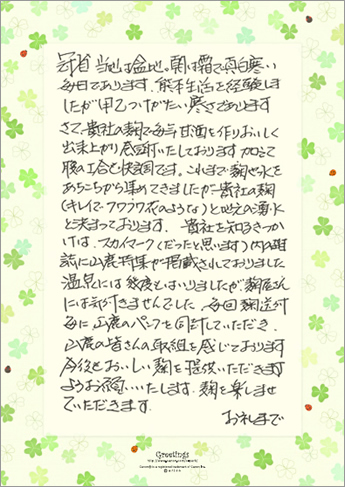 前略 当地は盆地。朝は霜で真白寒い
毎日であります。熊本生活を経験しま
したが甲乙つけがたい寒さであります
さて、貴社の麹で毎年甘酒を作りおいしく
出来上がり感謝いたしております 加えて
腹の工合も快調です。これまで麹や水を
あちこちから集めてきましたが貴社の麹
(キレイで フワフワ 花のような)と地元の湧水
と決まっております。貴社を知るきっか
けは、スカイマーク(だったと思います)内の雑
誌に山鹿特集が掲載されておりました
温泉には幾度とはいりましたが麹屋さん
には気付きませんでした。毎回麹送付
毎に山鹿のパンフを同封していただき、
山鹿の皆さんの取組を感じております
今後とおいしい麹を提供いただきます
ようお願いいたします。麹を楽しませ
ていただきます。
お礼まで
Greetings